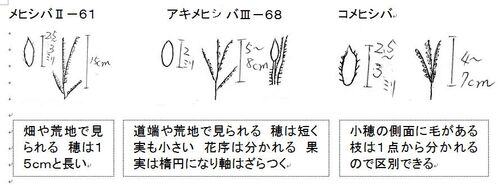 メヒシバⅡ－61
アキメヒシ バⅢ－68
コメヒシバ
2.5
～
3
ミリ
15cm
2
ミリ
5～
8cm
2.5
～
3
ミリ
4～
7cm
畑や荒地で見
られる 穂は1
5cmと長い。
道端や荒地で見られる 穂は短く
実も小さい 花序は分かれる 果
実は楕円になり軸はざらつく。
小穂の側面に毛がある
枝は1点から分かれる
ので区別できる。